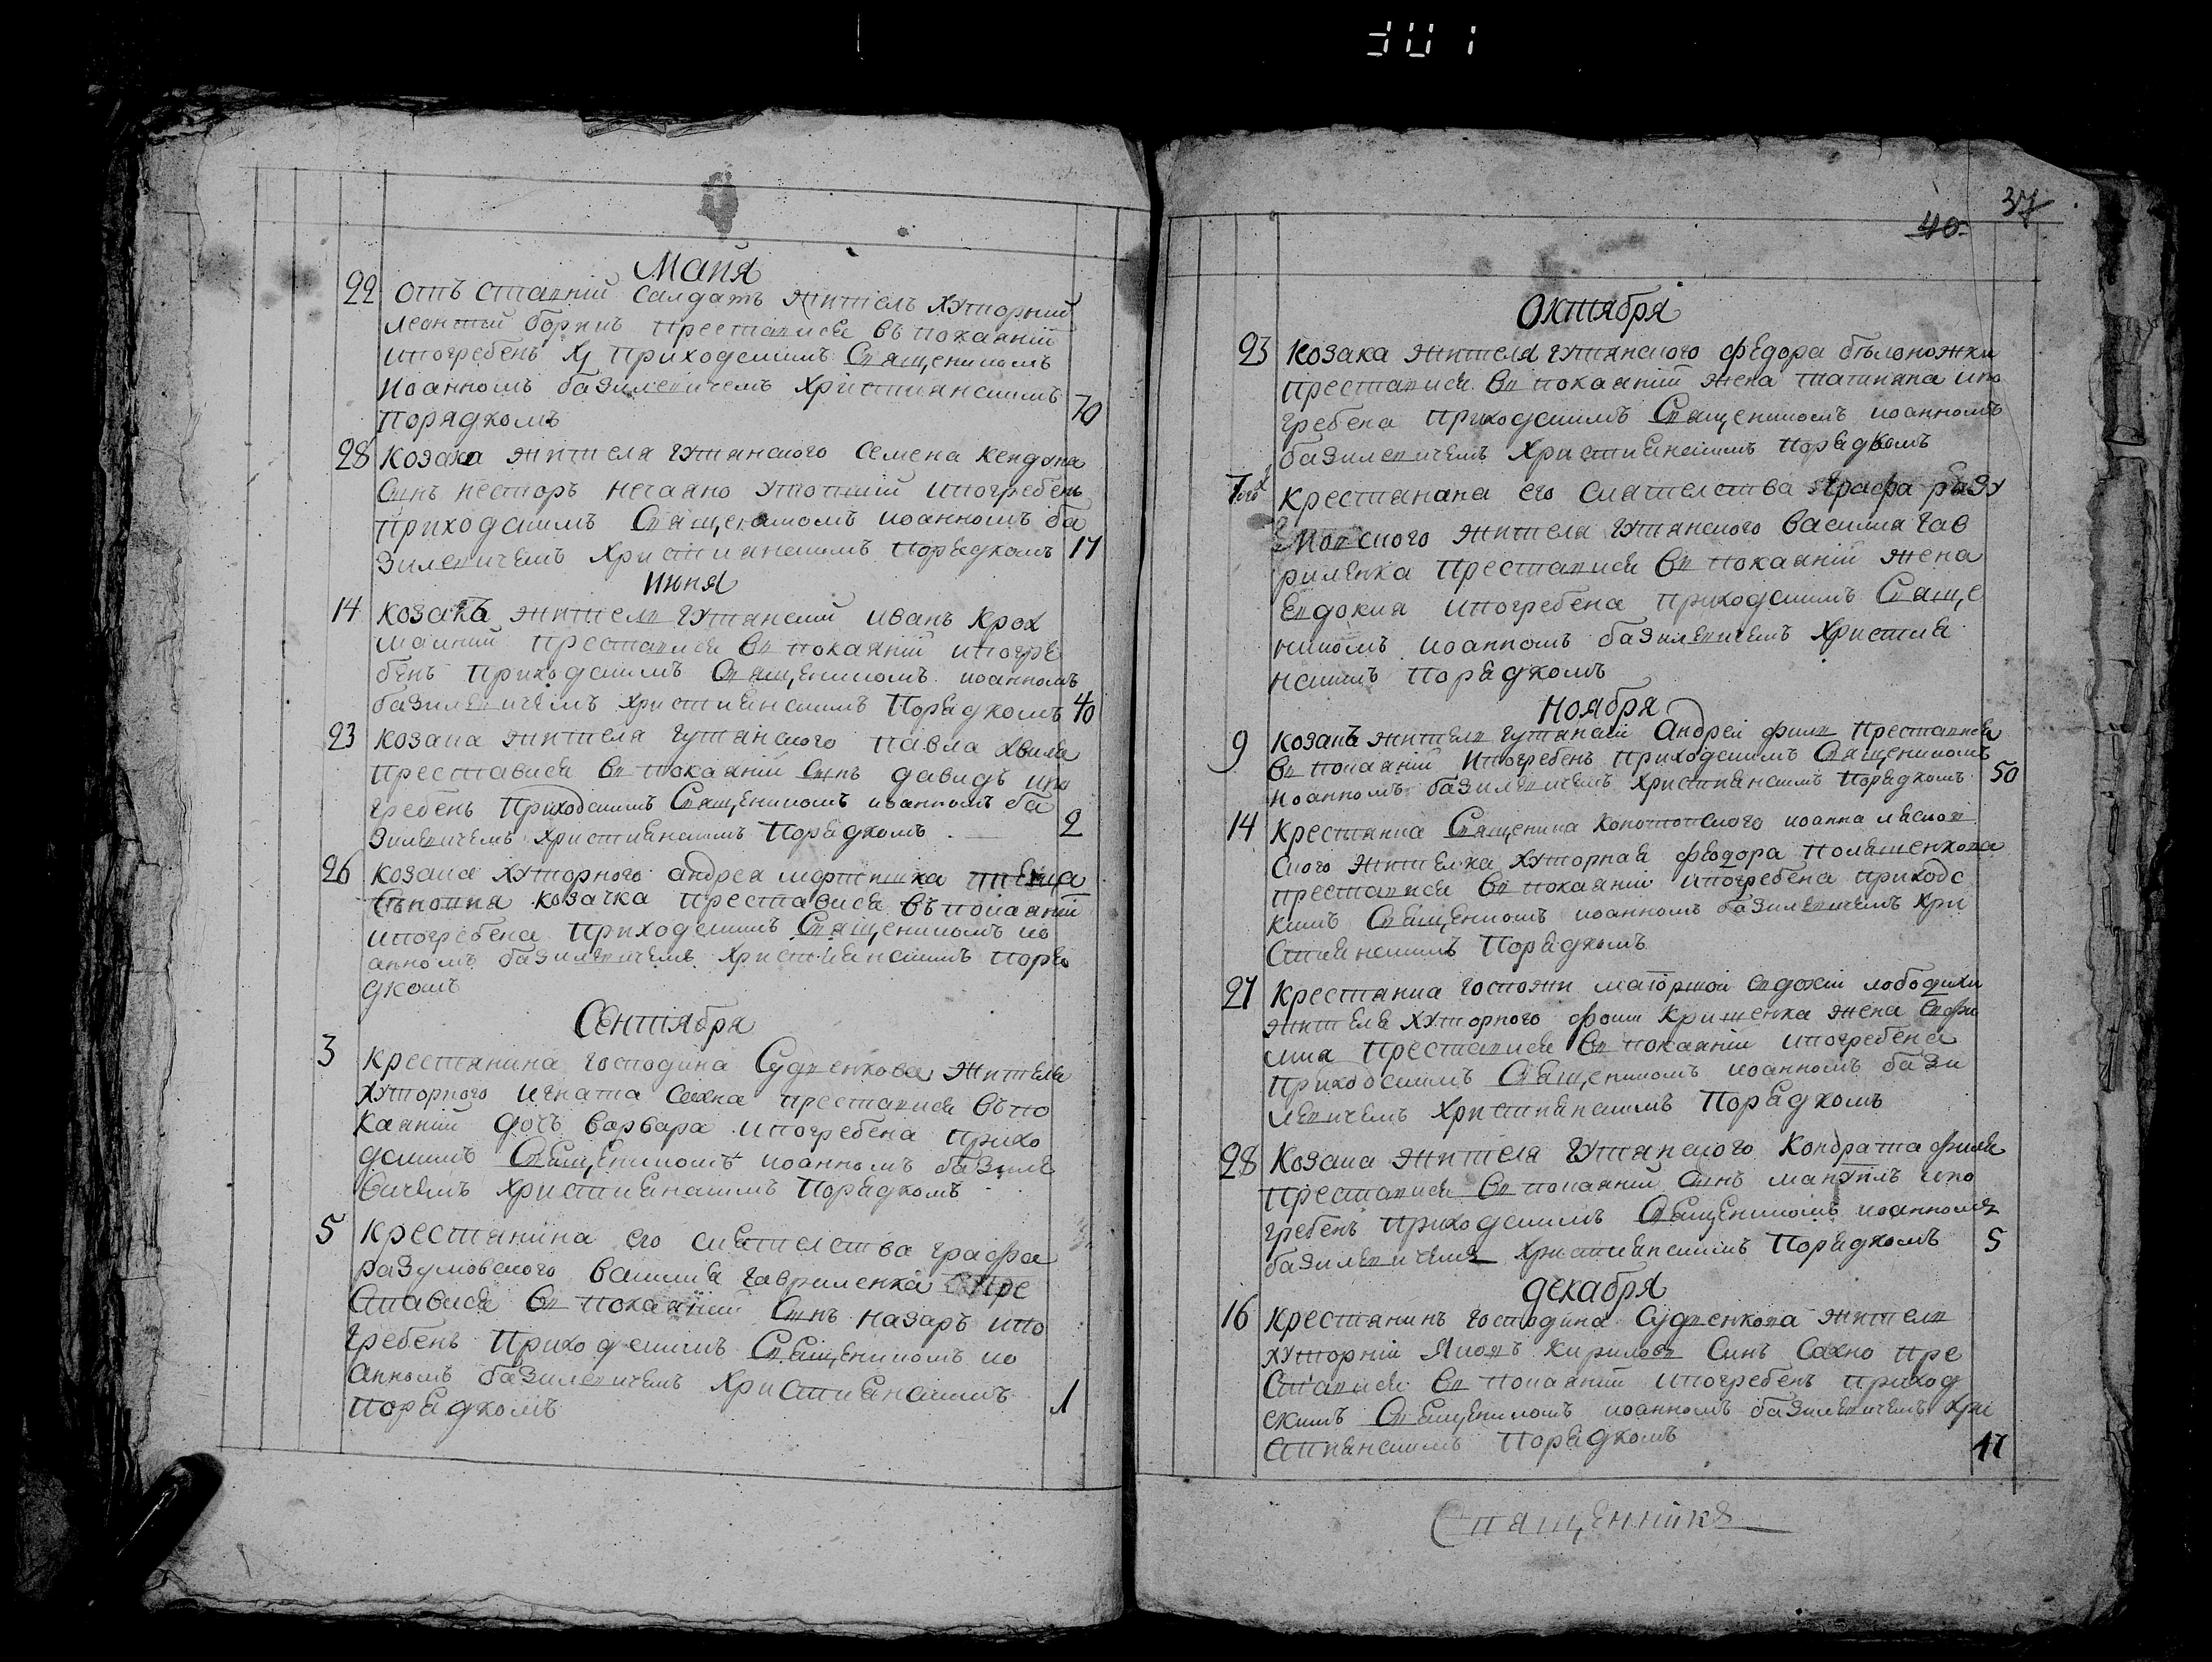 301
Маия
22 отъ ставній салдатъ житель хуторній
леонтій борич преставися въ покаяніи
ипогребенъ приходскимъ Священикомъ
иоанномъ базилевичемъ христианскимъ
порядкомъ 70
28 козака жителя гутянского семена
Синъ несторъ нечаяно утопшій ипогребенъ
приходскимъ Священикомъ иоанномъ ба
зилевичемъ христианскимъ порядкомъ 17
июня
14 козакъ житель гутянский иванъ крох
малний преставися въ покаяній ипогре
бенъ приходскимъ Священикомъ иоанномъ
базилевичемъ христианскимъ порядкомъ 40
23 козака жителя гутянского павла хвиля
преставися въ покаяній Синъ давидъ ипо
гребенъ приходскимъ Священикомъ иоанномъ ба
зилевичемъ христианскимъ порядкомъ 2
26 козака хуторного андрея
козачка преставися въ покаяній
ипогребена приходскимъ Священикомъ ио
анномъ базилевичемъ христианскимъ поря
дкомъ
Сентября
3 крестянина господина Судиенкова жителя
хуторного игната сахна преставися въ по
каяній дочъ варвара ипогребена прихо
дскимъ Священикомъ иоанномъ базиле
вичемъ христианскимъ порядкомъ
5 крестянина его сиятелства графа
разумовского василия гавриленка пре
ставися въ покаяній Синъ назаръ ипо
гребенъ приходскимъ Священикомъ ио
анномъ базилевичемъ христианскимъ
порядкомъ 1
40 37
Октября
23 козака жителя гутянского федора белоножки
преставися въ покаяній жена татияна ипо
гребена приходскимъ Священикомъ иоанномъ
базилевичемъ христианскимъ порядкомъ
Того крестянина его сиателства графа разу
мовского жителя гутянского василия гав
риленка преставися въ покаяній жена
евдокия ипогребена приходскимъ Свяще
никомъ иоанномъ базилевичемъ христиа
нскимъ порядкомъ
Ноября
9 козакъ житель гутянский андрей филь преставися
въ покаяній ипогребенъ приходскимъ Священикомъ
иоанномъ базилевичемъ христианскимъ порядкомъ 50
14 крестянка Священика конотопского иоанна
ского жителка хуторная феодора
преставися въ покаяній ипогребена приходс
кимъ Священикомъ иоанномъ базилевичемъ хри
стианскимъ порядкомъ
27 крестянка госпожи маюршой евдокіи лободихи
жителя хуторного фоми кришенка жена евфи
мия преставися въ покаяній ипогребена
приходскимъ Священикомъ иоанномъ бази
левичемъ христианскимъ порядкомъ
28 козака жителя гутянского кондрата филя
преставися въ покаяній Синъ мануилъ ипо
гребенъ приходскимъ Священикомъ иоанномъ
базилевичемъ христианскимъ порядкомъ 5
декабря
16 крестянинъ господина Судиенкова житель
хуторній яковъ кириловъ Синъ Сахно пре
ставися въ покаяній ипогребенъ приход
скимъ Священикомъ иоанномъ базилевичемъ хри
стианскимъ порядкомъ 17
Священникъ